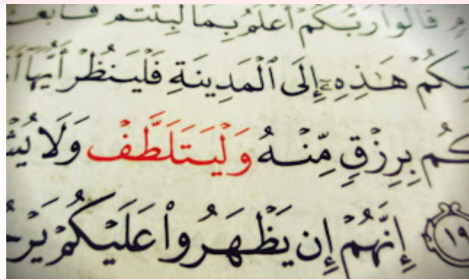 قَالُوا۟ رَبُّكُمْ أَعْلَمُ بِمَا لَبِثْتُمْ
هَـٰذِهِۦٓ إِلَى ٱلْمَدِينَةِ فَلْيَنظُرْ أَيُّهَآ
بِرِزْقٍ مِّنْهُ وَلْيَتَلَطَّفْ وَلَا
١٩ إِنَّهُمْ إِن يَظْهَرُوا۟ عَلَيْكُمْ